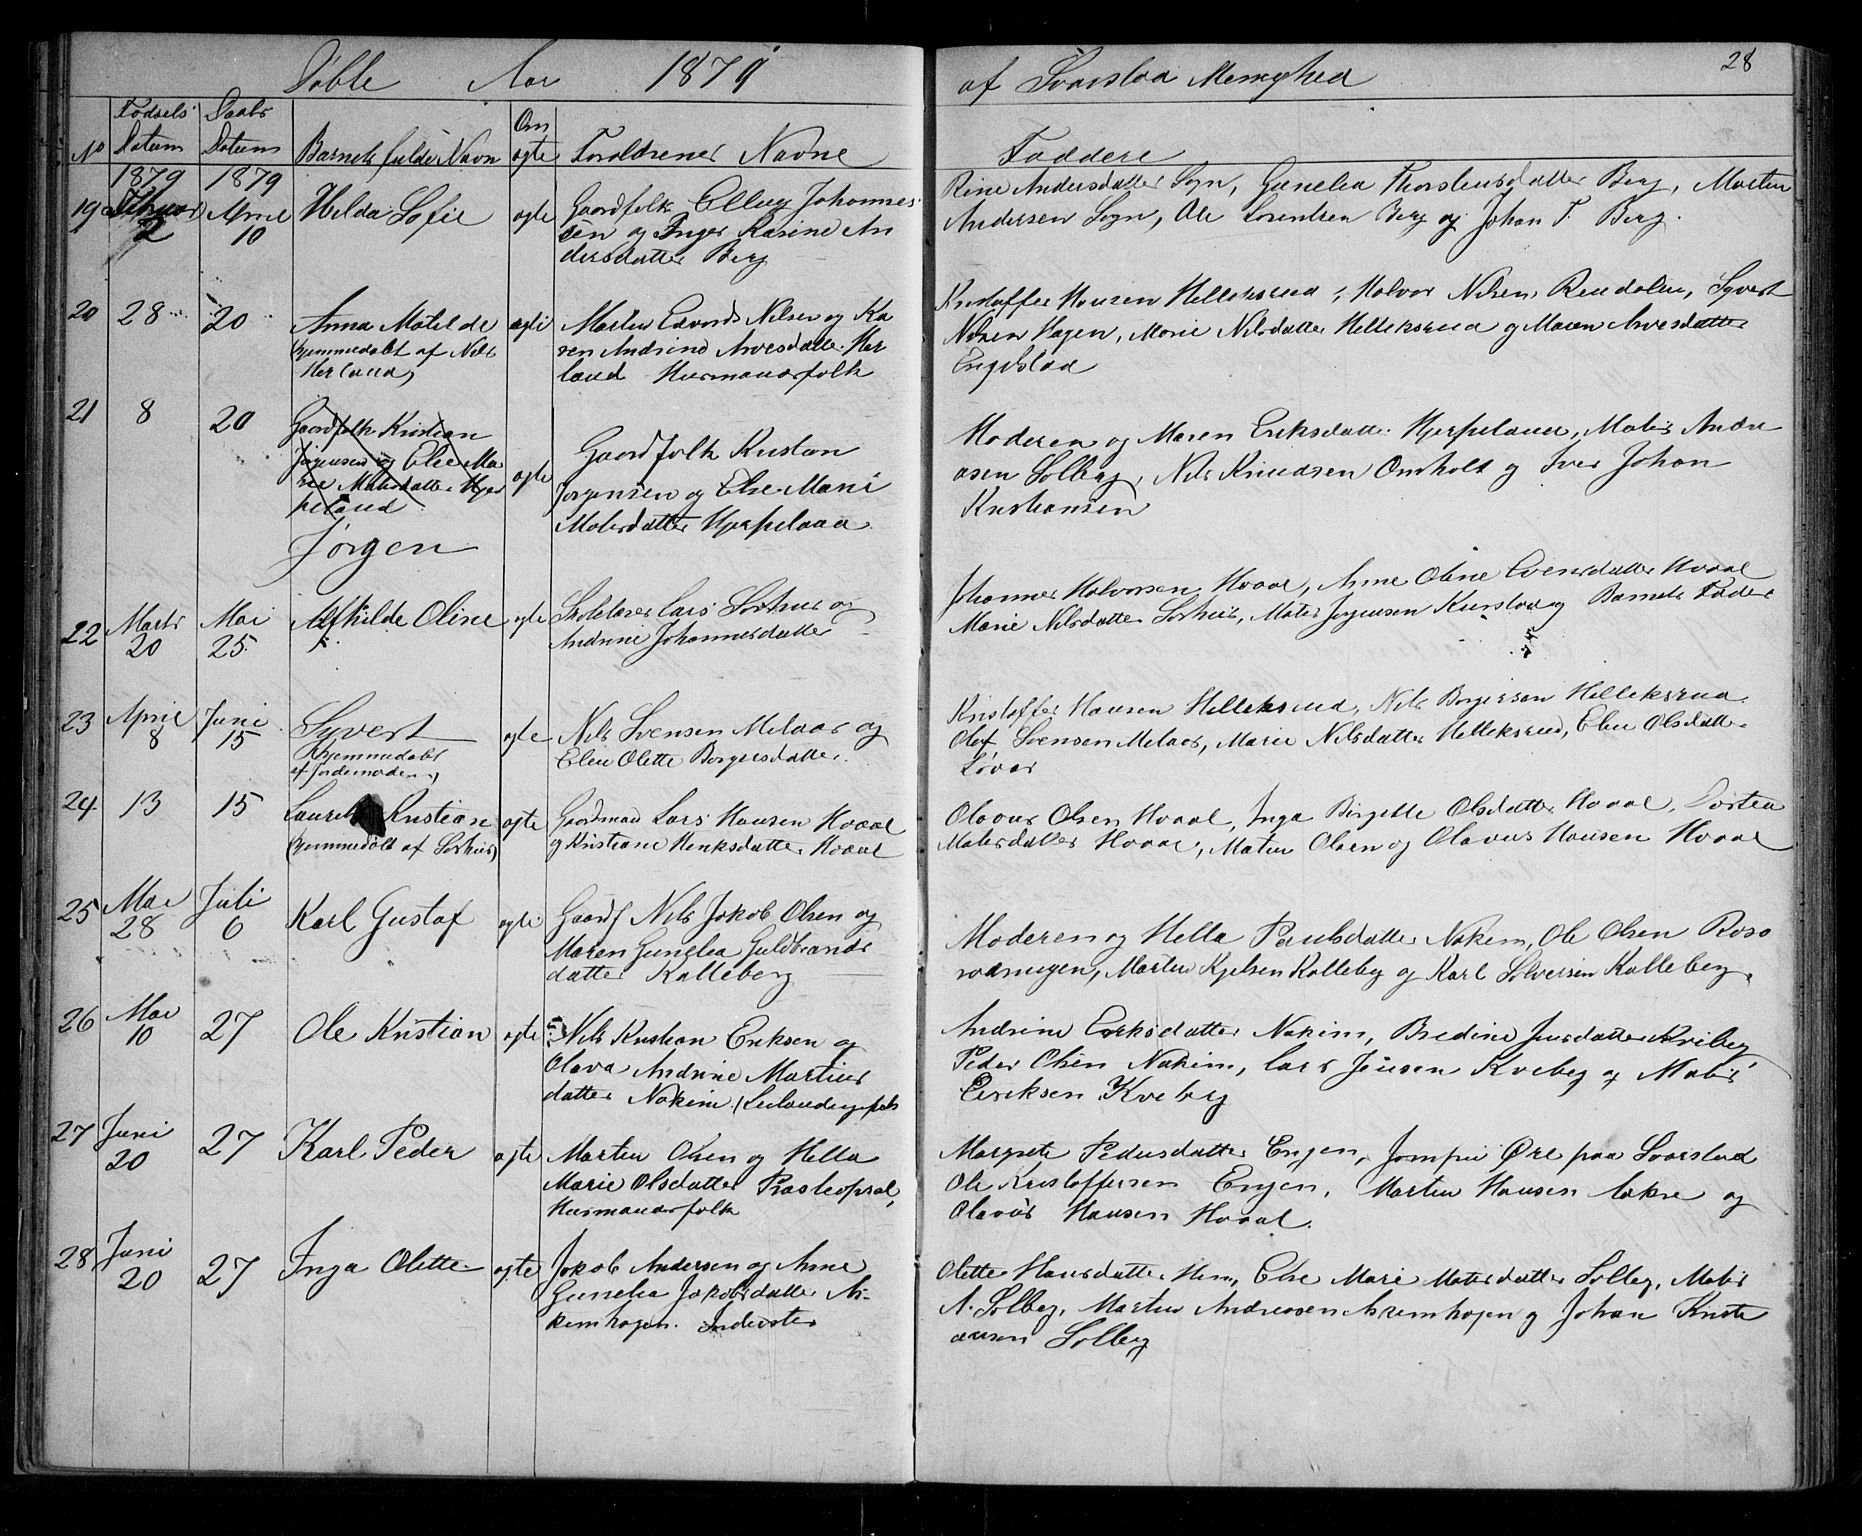 Döbte Aar 1879
af Svarstad Menighed
28
No
Fødsels Datum
Daabs Datum
Barnets fulde Navn
Om ægte
Forældrenes Navne
Faddere
1879 1879
19
2
April 10
Helda Sofie
ægte
Gaardfolk Ellug Johannes
sen og Inger Karine An
dersdatter Berg
Rine Andersdatter Sogn, Gunelia Thorstensdatter Berg, Martin
Andersen Sogn, Ole Lorentsen Berg og Johan T. Berg.
20
28
20
Anna Matilde
(hjemmedøbt af Nils
Herland)
ægte
Martin Edvard Nilsen og Ka
ren Andrine Arvesdatter Her
land Husmandsfolk
Kristoffer Hansen Helleksrud, Halvor Nilsen Rendalen, Syvert
Nilsen Hagen, Marie Nilsdatter Helleksrud og Maren Arvesdatter
Engelstad
21
8
20
Gaardfolk Kristian
Jørgensen og Else Ma
rie Matisdatter Hjer
peland
Jørgen
ægte
Gaardfolk Kristian
Jørgensen og Else Marie
Matisdatter Hjerpeland
Moderen og Maren Eriksdatter Hjerpeland, Matis Andre
asen Solberg, Nils Knudsen Omholt og Iver Johan
Kristiansen
22
Marts 20
Mai 25
Alfhilde Oline
ægte
Skolelærer Lars Sørhus og
Andrine Johannesdatter
Johannes Halvorsen Hvaal, Anne Oline Evensdatter Hvaal
Marie Nilsdatter Sørhus, Matis Jørgensen Kverstad og Barnets Fader
23
April 8
Juni 15
Syvert
(hjemmedøbt
af Jordemoderen)
ægte
Nils Svensen Melaas og
Elen Olette Borgersdatter
Kristoffer Hansen Helleksrud, Nils Borgersen Helleksrud
Olef Svensen Melaas, Marie Nilsdatter Helleksrud, Elen Olsdatter
Løvas
24
13
15
Laurits Kristian
(hjemmedøbt af Sørhus)
ægte
Gaardmand Lars Hansen Hvaal
og Kristiane Henriksdatter Hvaal
Olavus Olsen Hvaal, Inga Birgitte Olsdatter Hvaal, Dortea
Matisdatter Hvaal, Martin Olsen og Olavus Hansen Hvaal
25
Mai 28
Juli 6
Karl Gustaf
ægte
Gaardf Nils Jakob Olsen og
Maren Gunelia Guldbrands
datter Kalleberg
Moderen og Hella Paulsdatter Nakim, Ole Olsen
Martin Kjelsen Kalleberg og Karl Solversen Kalleberg.
26
Mai 10
27
Ole Kristian
ægte
Nils Kristian Eriksen og
Olava Andrine Martins
datter Nakim (Leilændingsfolk
Andrine Eriksdatter Nakim, Bredine Jensdatter Kveberg
Peder Olsen Nakim, Lars Jensen Kveberg og Matis
Eriksen Kveberg
27
Juni 20
27
Karl Peder
ægte
Martin Olsen og Hella
Marie Olsdatter
Husmandsfolk
Margrete Pedersdatter Engen, Jomfru Øre paa Svarstad
Ole Kristoffersen Engen, Martin Hansen og
Olavus Hansen Hvaal.
28
Juni 20
27
Inga Olette
ægte
Jakob Andersen og Anne
Gunelia Jakobsdatter As-
kemhagen. Inderster
Olette Hansdatter Hem, Else Marie Matisdatter Solberg, Matis
A. Solberg, Martin Andreasen Askemhagen og Johan Kristi
ansen Solberg